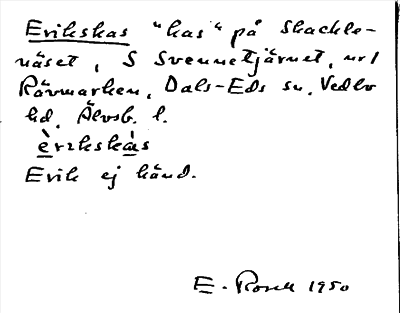 Erikskas "kas" på Skackle-
näset, S Svennetjärnet, nr 1
Rävmarken, Dals-Eds sn. Vedbo
hd. Älvsb. l.
èrikskàs
Erik ej känd.
E. 1950